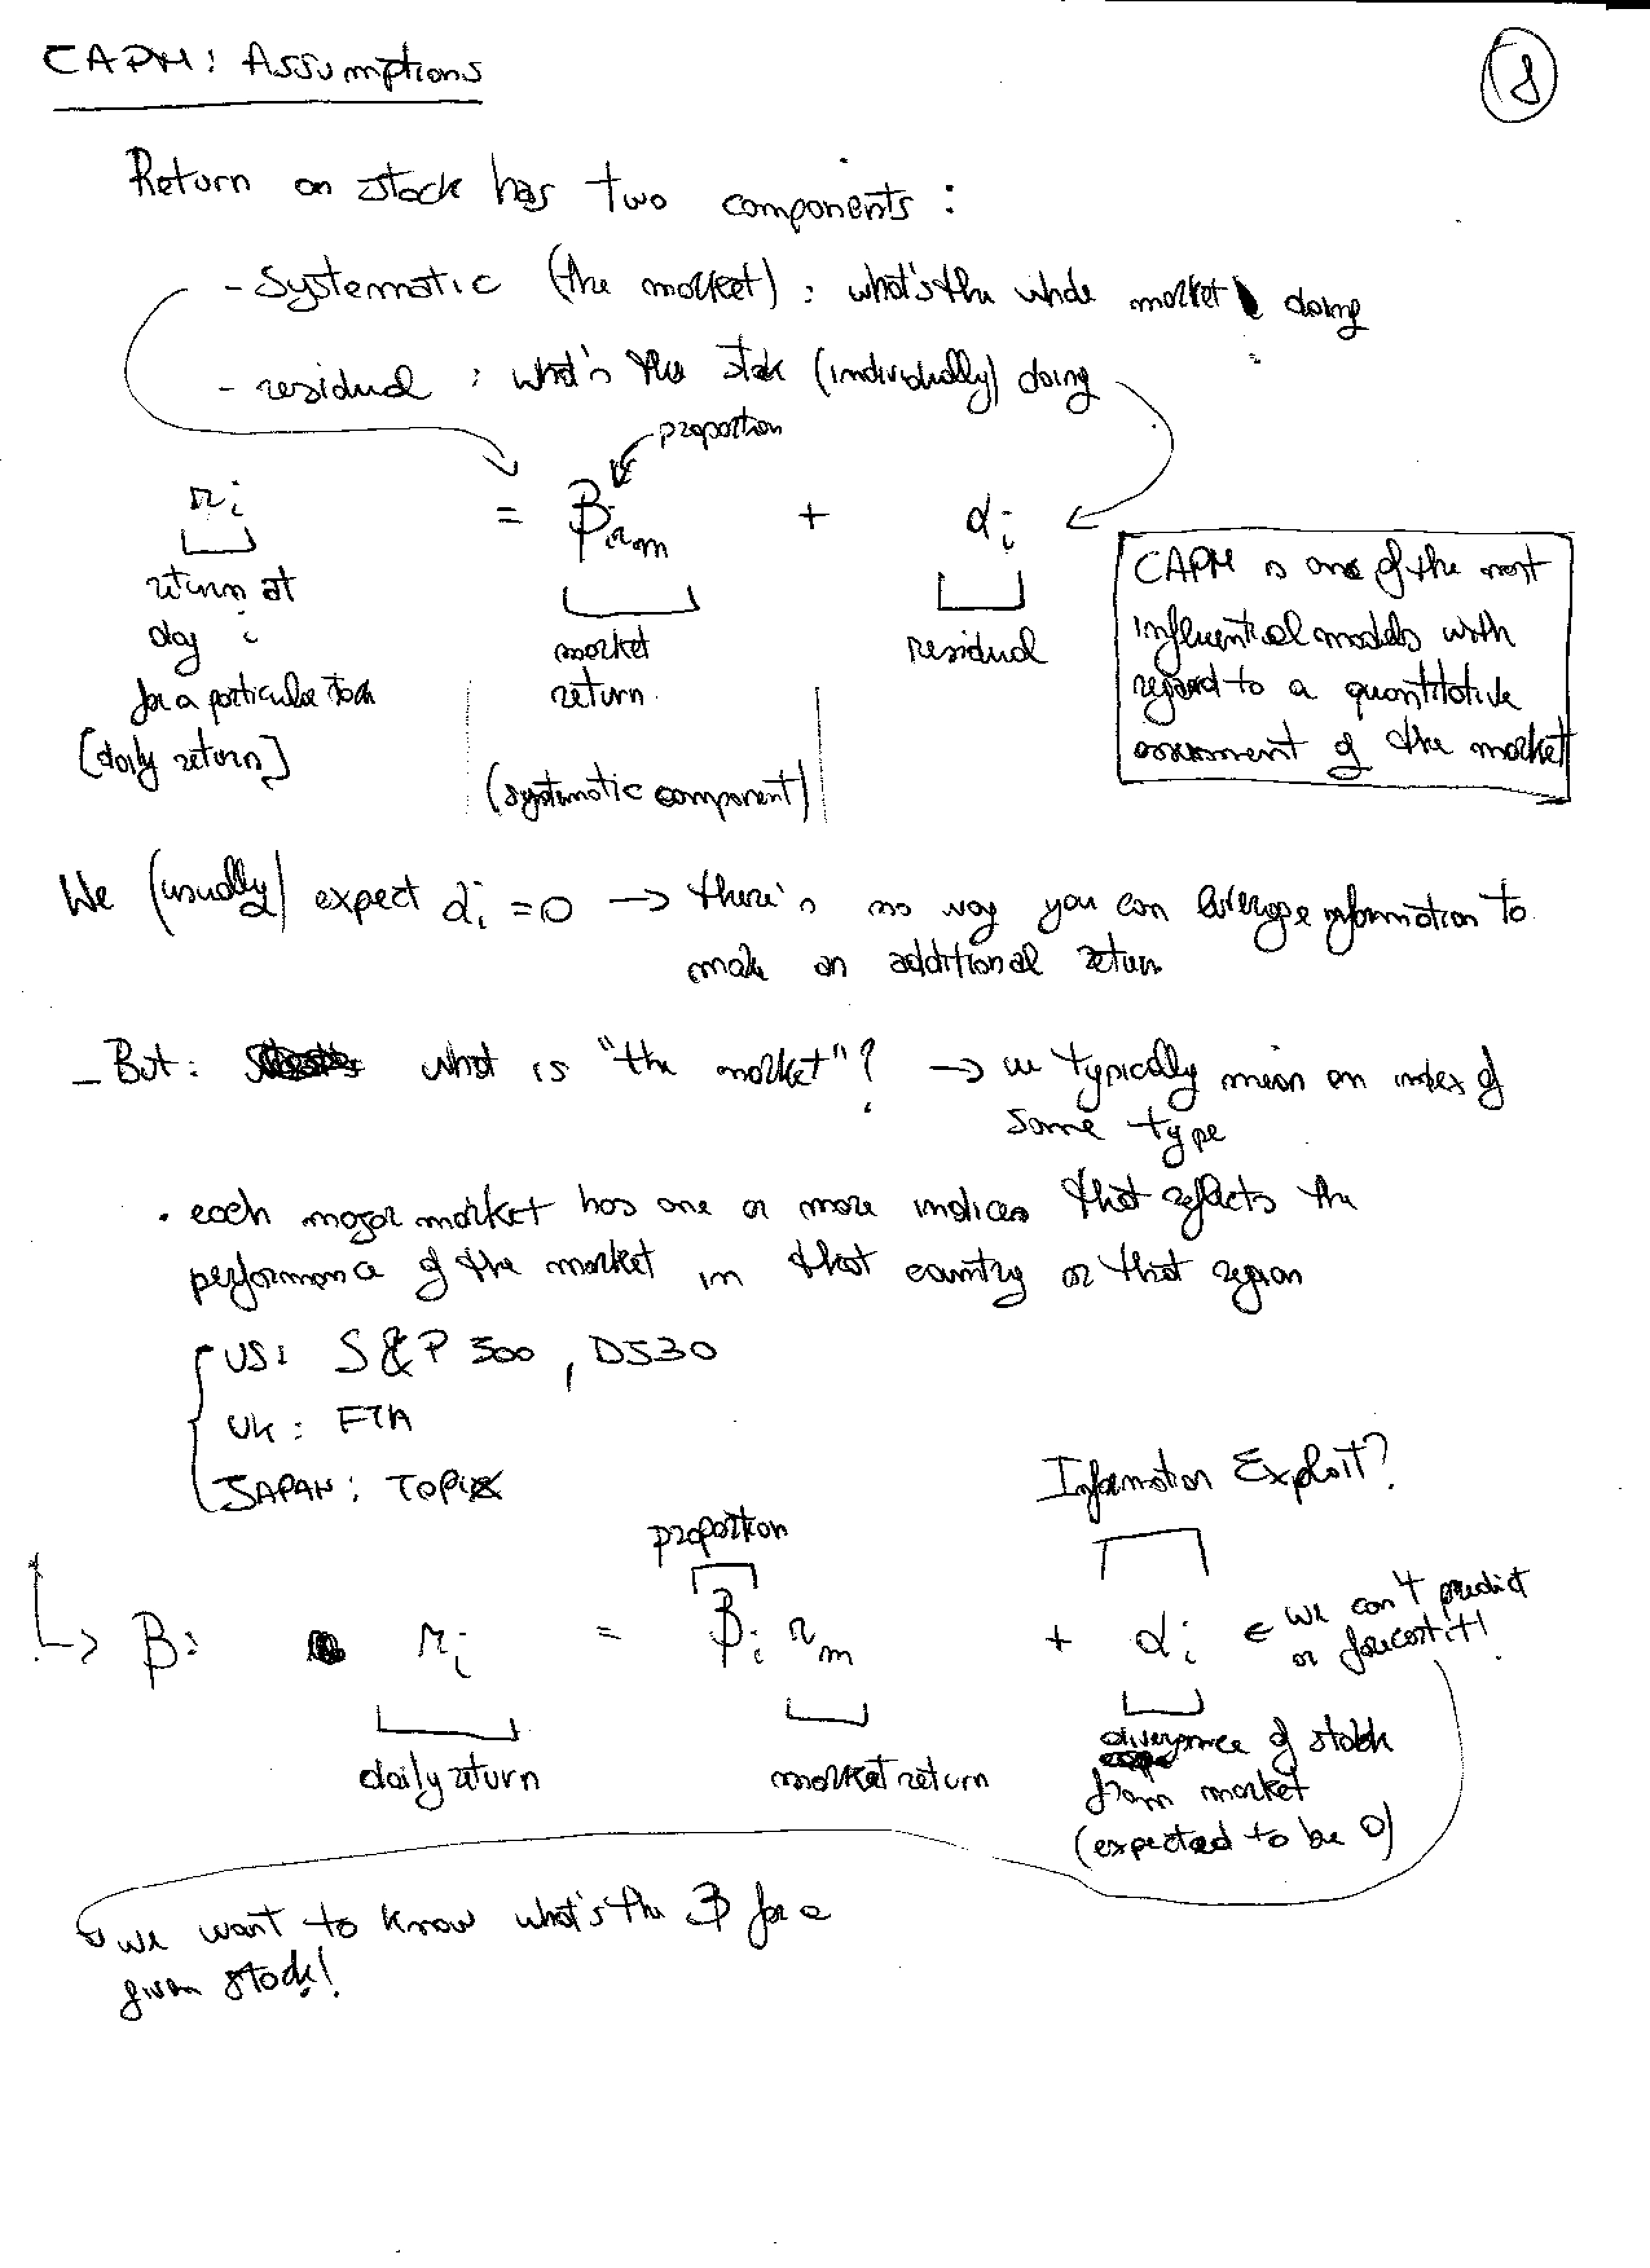 CAPM: Assumptions
8
Return on stock has two components:
- Systematic (the market): what's the whole market doing
- residual: what's the stock (individually) doing
proportion
ri = βi rm + αi
return at
day i
for a particular stock
[daily return]
market
return
(systematic component)
residual
CAPM is one of the most
influential models with
regard to a quantitative
assessment of the market
We (usually) expect αi = 0 → there's no way you can leverage information to
make an additional return
- But: what is "the market"? → we typically mean an index of
some type
• each major market has one or more indices that reflects the
performance of the market in that country or that region
US: S&P 500, DJ30
UK: FTA
JAPAN: TOPIX
Information Exploit?
proportion
→ β: ri = βi rm + αi ← we can't predict
or forecast it!
daily return
market return
divergence of stock
from market
(expected to be 0)
we want to know what's the β for a
given stock!